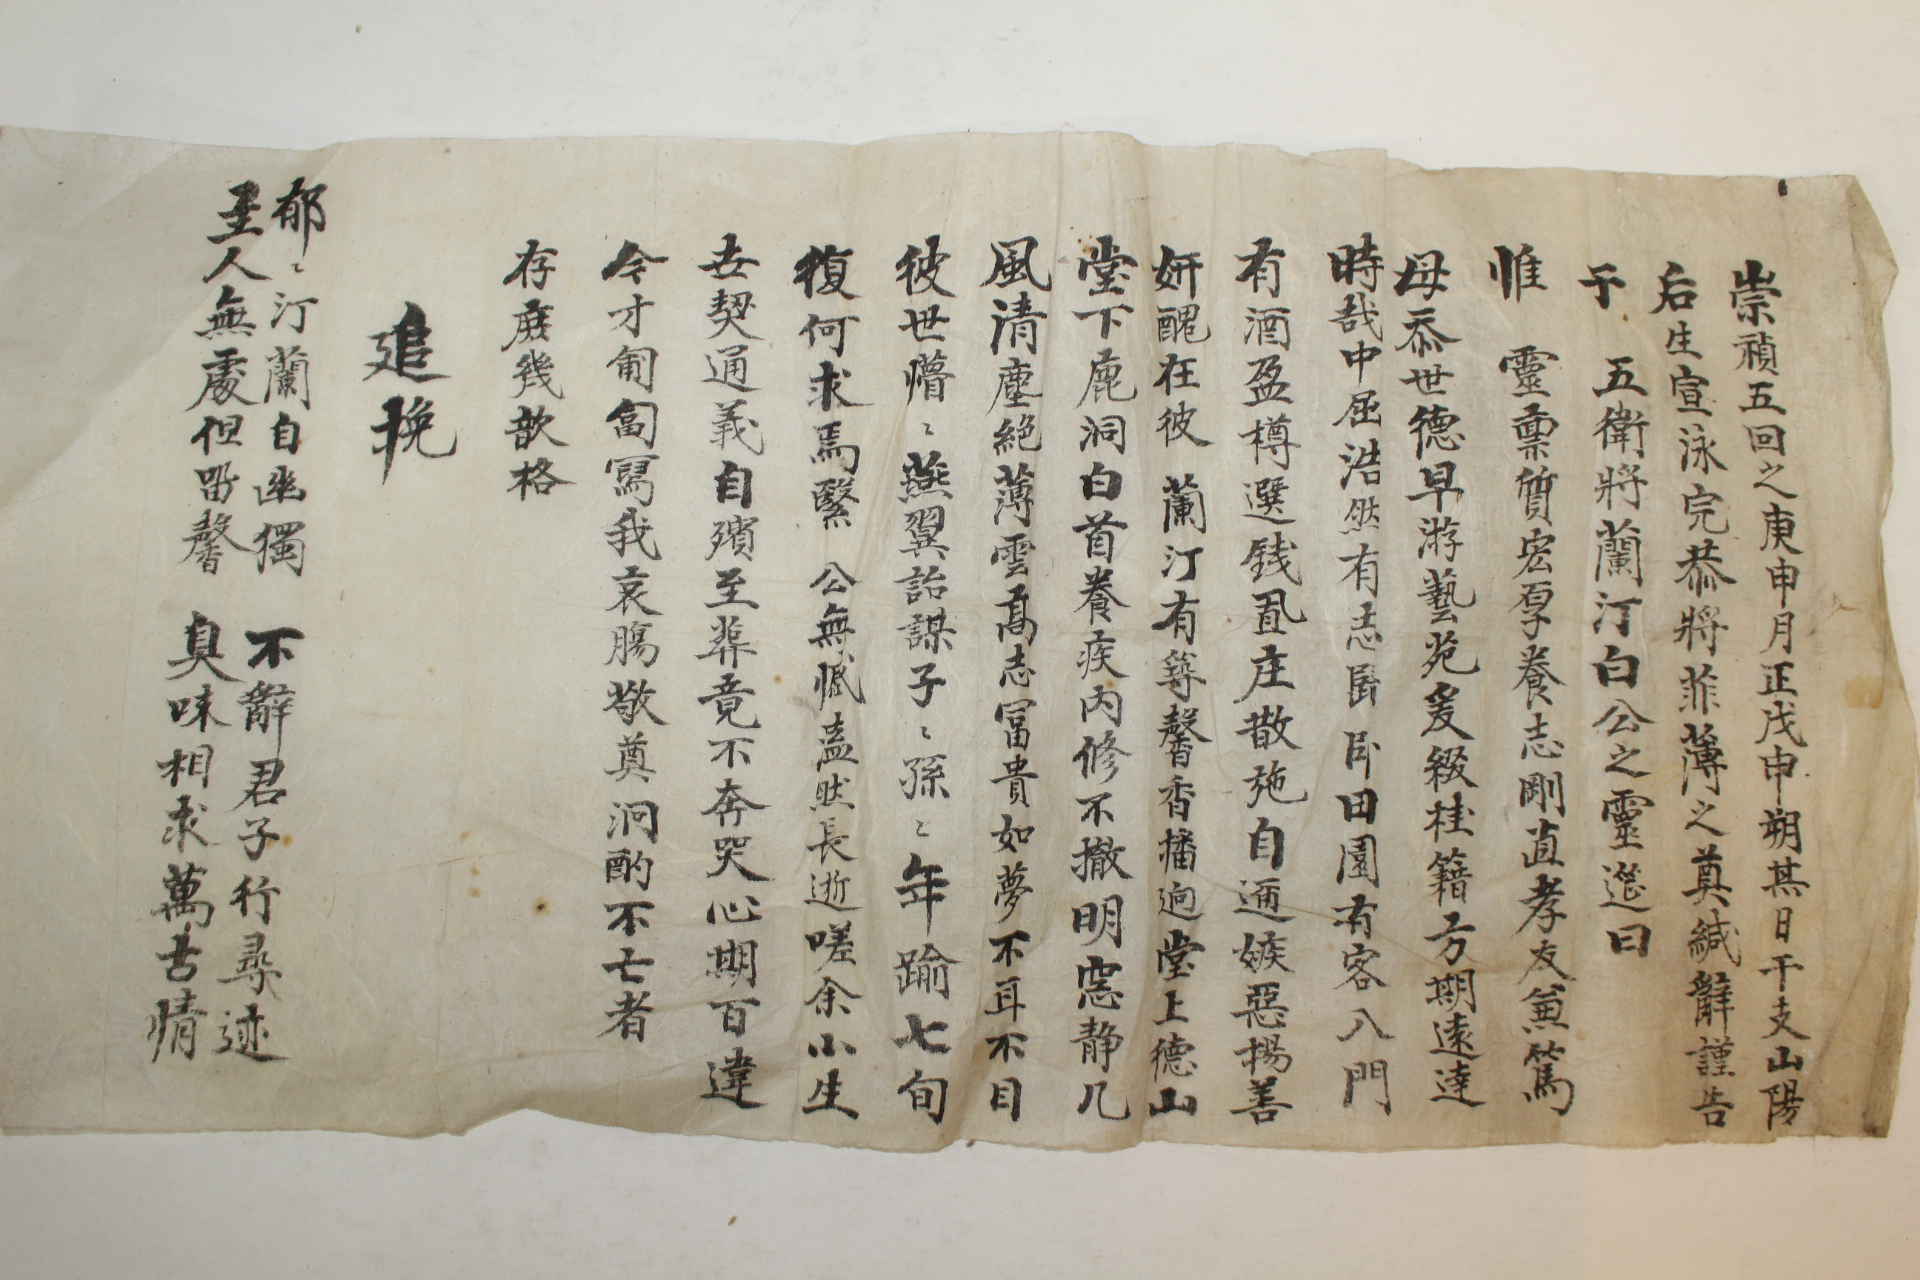 崇禎五回之庚申月正戊申朔某日干支山陽
后生宣泳完恭將菲薄之奠緘辭謹告
于 五衛將蘭汀白公之靈筵曰
惟 靈稟質宏厚養志剛直孝友兼篤
母忝世德早游藝苑爰綴桂籍方期遠達
時哉中屈浩然有志歸卧田園有客入門
有酒盈樽選錢買庄散施自邇嫉惡揚善
妍醜在彼 蘭汀有蓴馨香播逈堂上德山
堂下鹿洞白首養疾內修不撤明窓静几
風清塵絶薄雲髙志冨貴如夢不耳不目
彼世懵〻燕翼詒謀子〻孫〻年踰七旬
復何求焉緊 公無憾溘然長逝嗟余小生
世契通義自殯至葬竟不奔哭心期百違
今才匍匐寫我哀膓敬奠泂酌不亡者
存庶幾歆格
追挽
郁〻汀蘭自幽獨 不辭君子行尋迹
主人無處但留馨 臭味相求萬古情